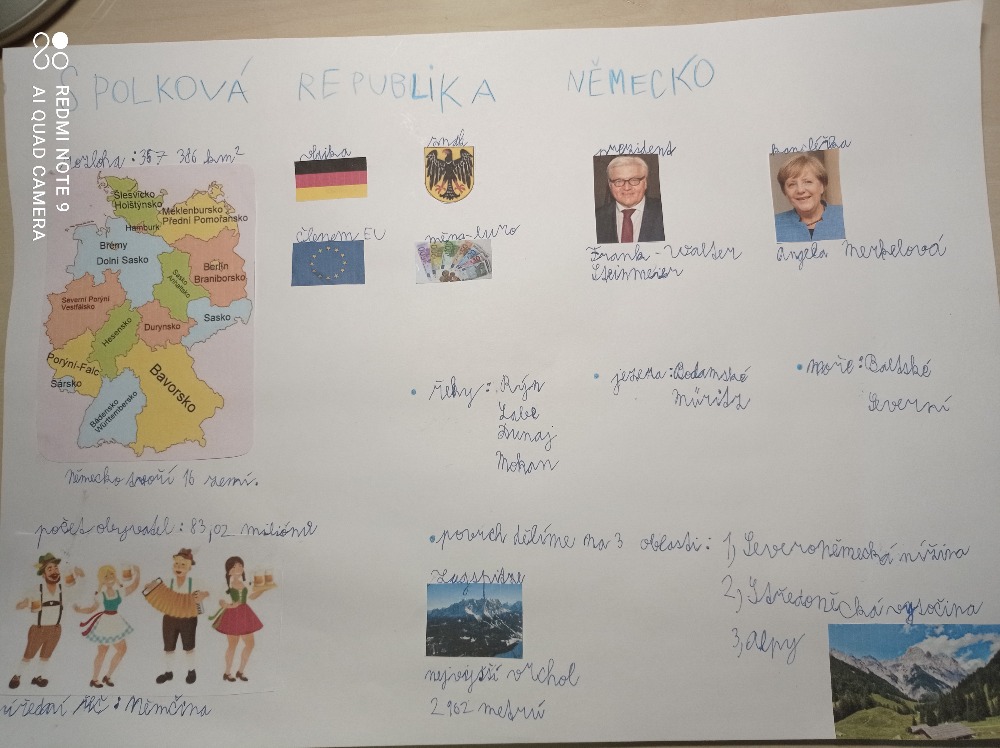 SPOLKOVÁ REPUBLIKA NĚMECKO
rozloha : 357 386 km²
Šlesvicko
Holštýnsko
Meklenbursko
Přední Pomořansko
Hamburk
Brémy
Dolní Sasko
Berlín
Braniborsko
Sasko
Anhaltsko
Severní Porýní
Vestfálsko
Hesensko
Durynsko
Sasko
Porýní-Falc
Sársko
Bavorsko
Bádensko
Württembersko
Německo tvoří 16 zemí.
vlajka
znak
členem EU
měna-Euro
prezident
Frank-Walter
Steinmeier
kancléřka
Angela Merkelová
• řeky : Rýn
Labe
Dunaj
Mohan
• jezera : Bodamské
Müritz
• moře : Baltské
Severní
počet obyvatel : 83,02 miliónů
úřední řeč : Němčina
• povrch dělíme na 3 oblasti : 1, Severoněmecká nížina
2, Středoněcká vysočina
3, Alpy
Zugspitze
nejvyšší vrchol
2 962 metrů
REDMI NOTE 9
AI QUAD CAMERA